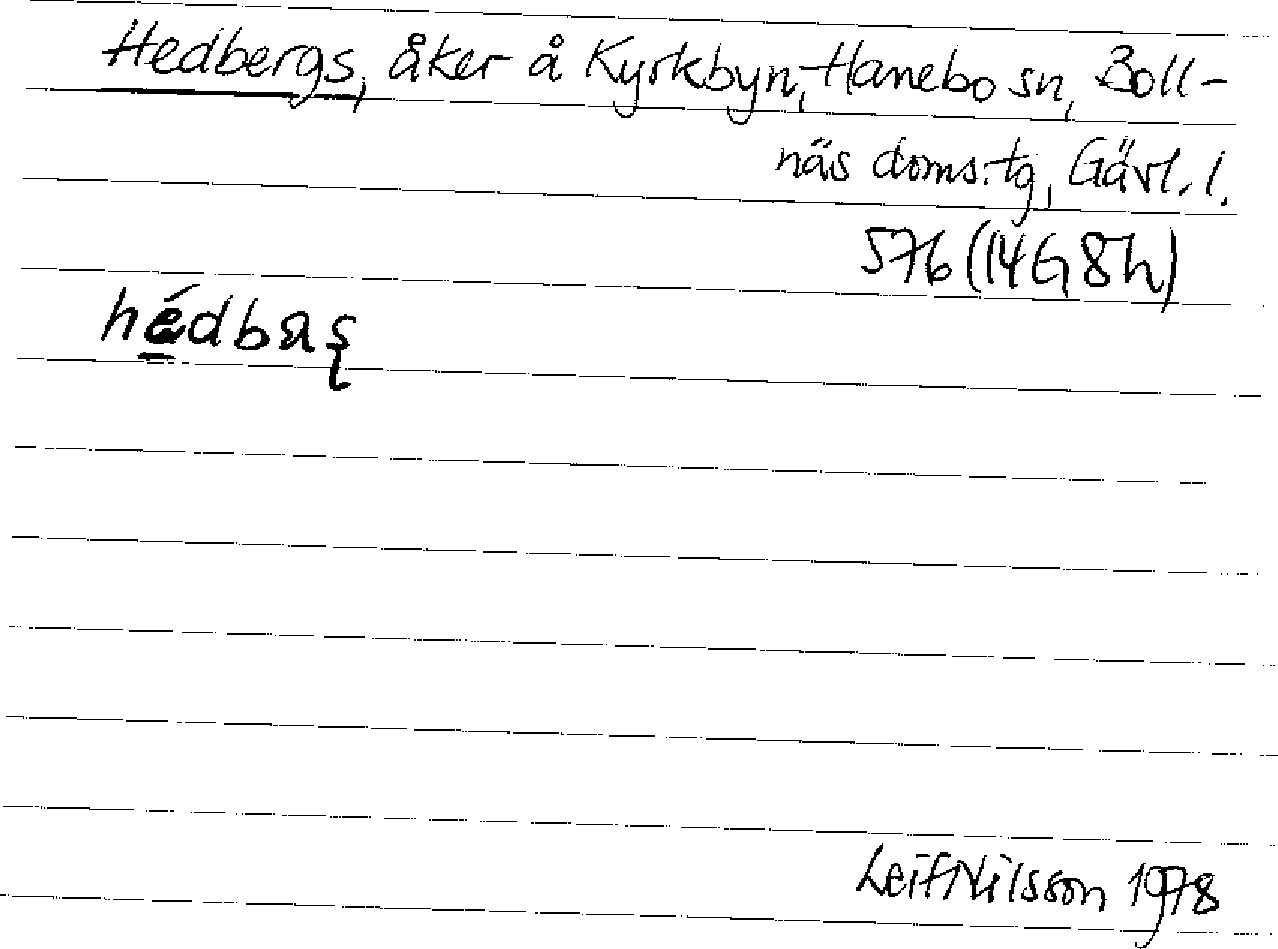 Hedbergs, åker å Kyrkbyn, Hanebo sn, Boll-
näs doms:tg, Gävl. l.
576 (14G8h)
hédbas̨
Leif Nilsson 1978